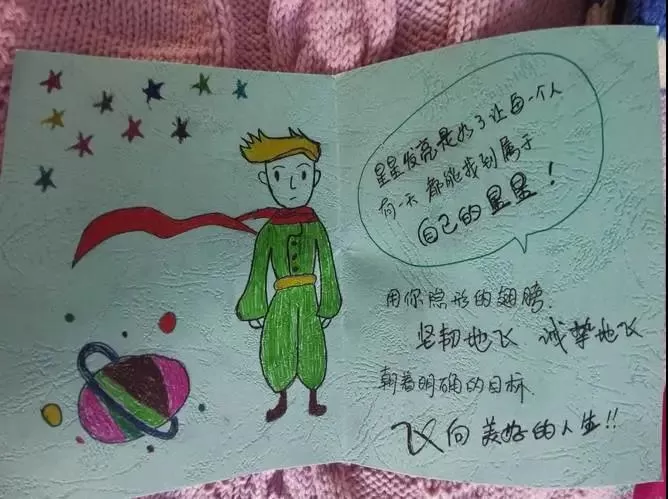 星星发亮是为了让每一个人
有一天都能找到属于
自己的星星！
用你隐形的翅膀.
坚韧地飞 诚挚地飞
朝着明确的目标.
飞向美好的人生!!